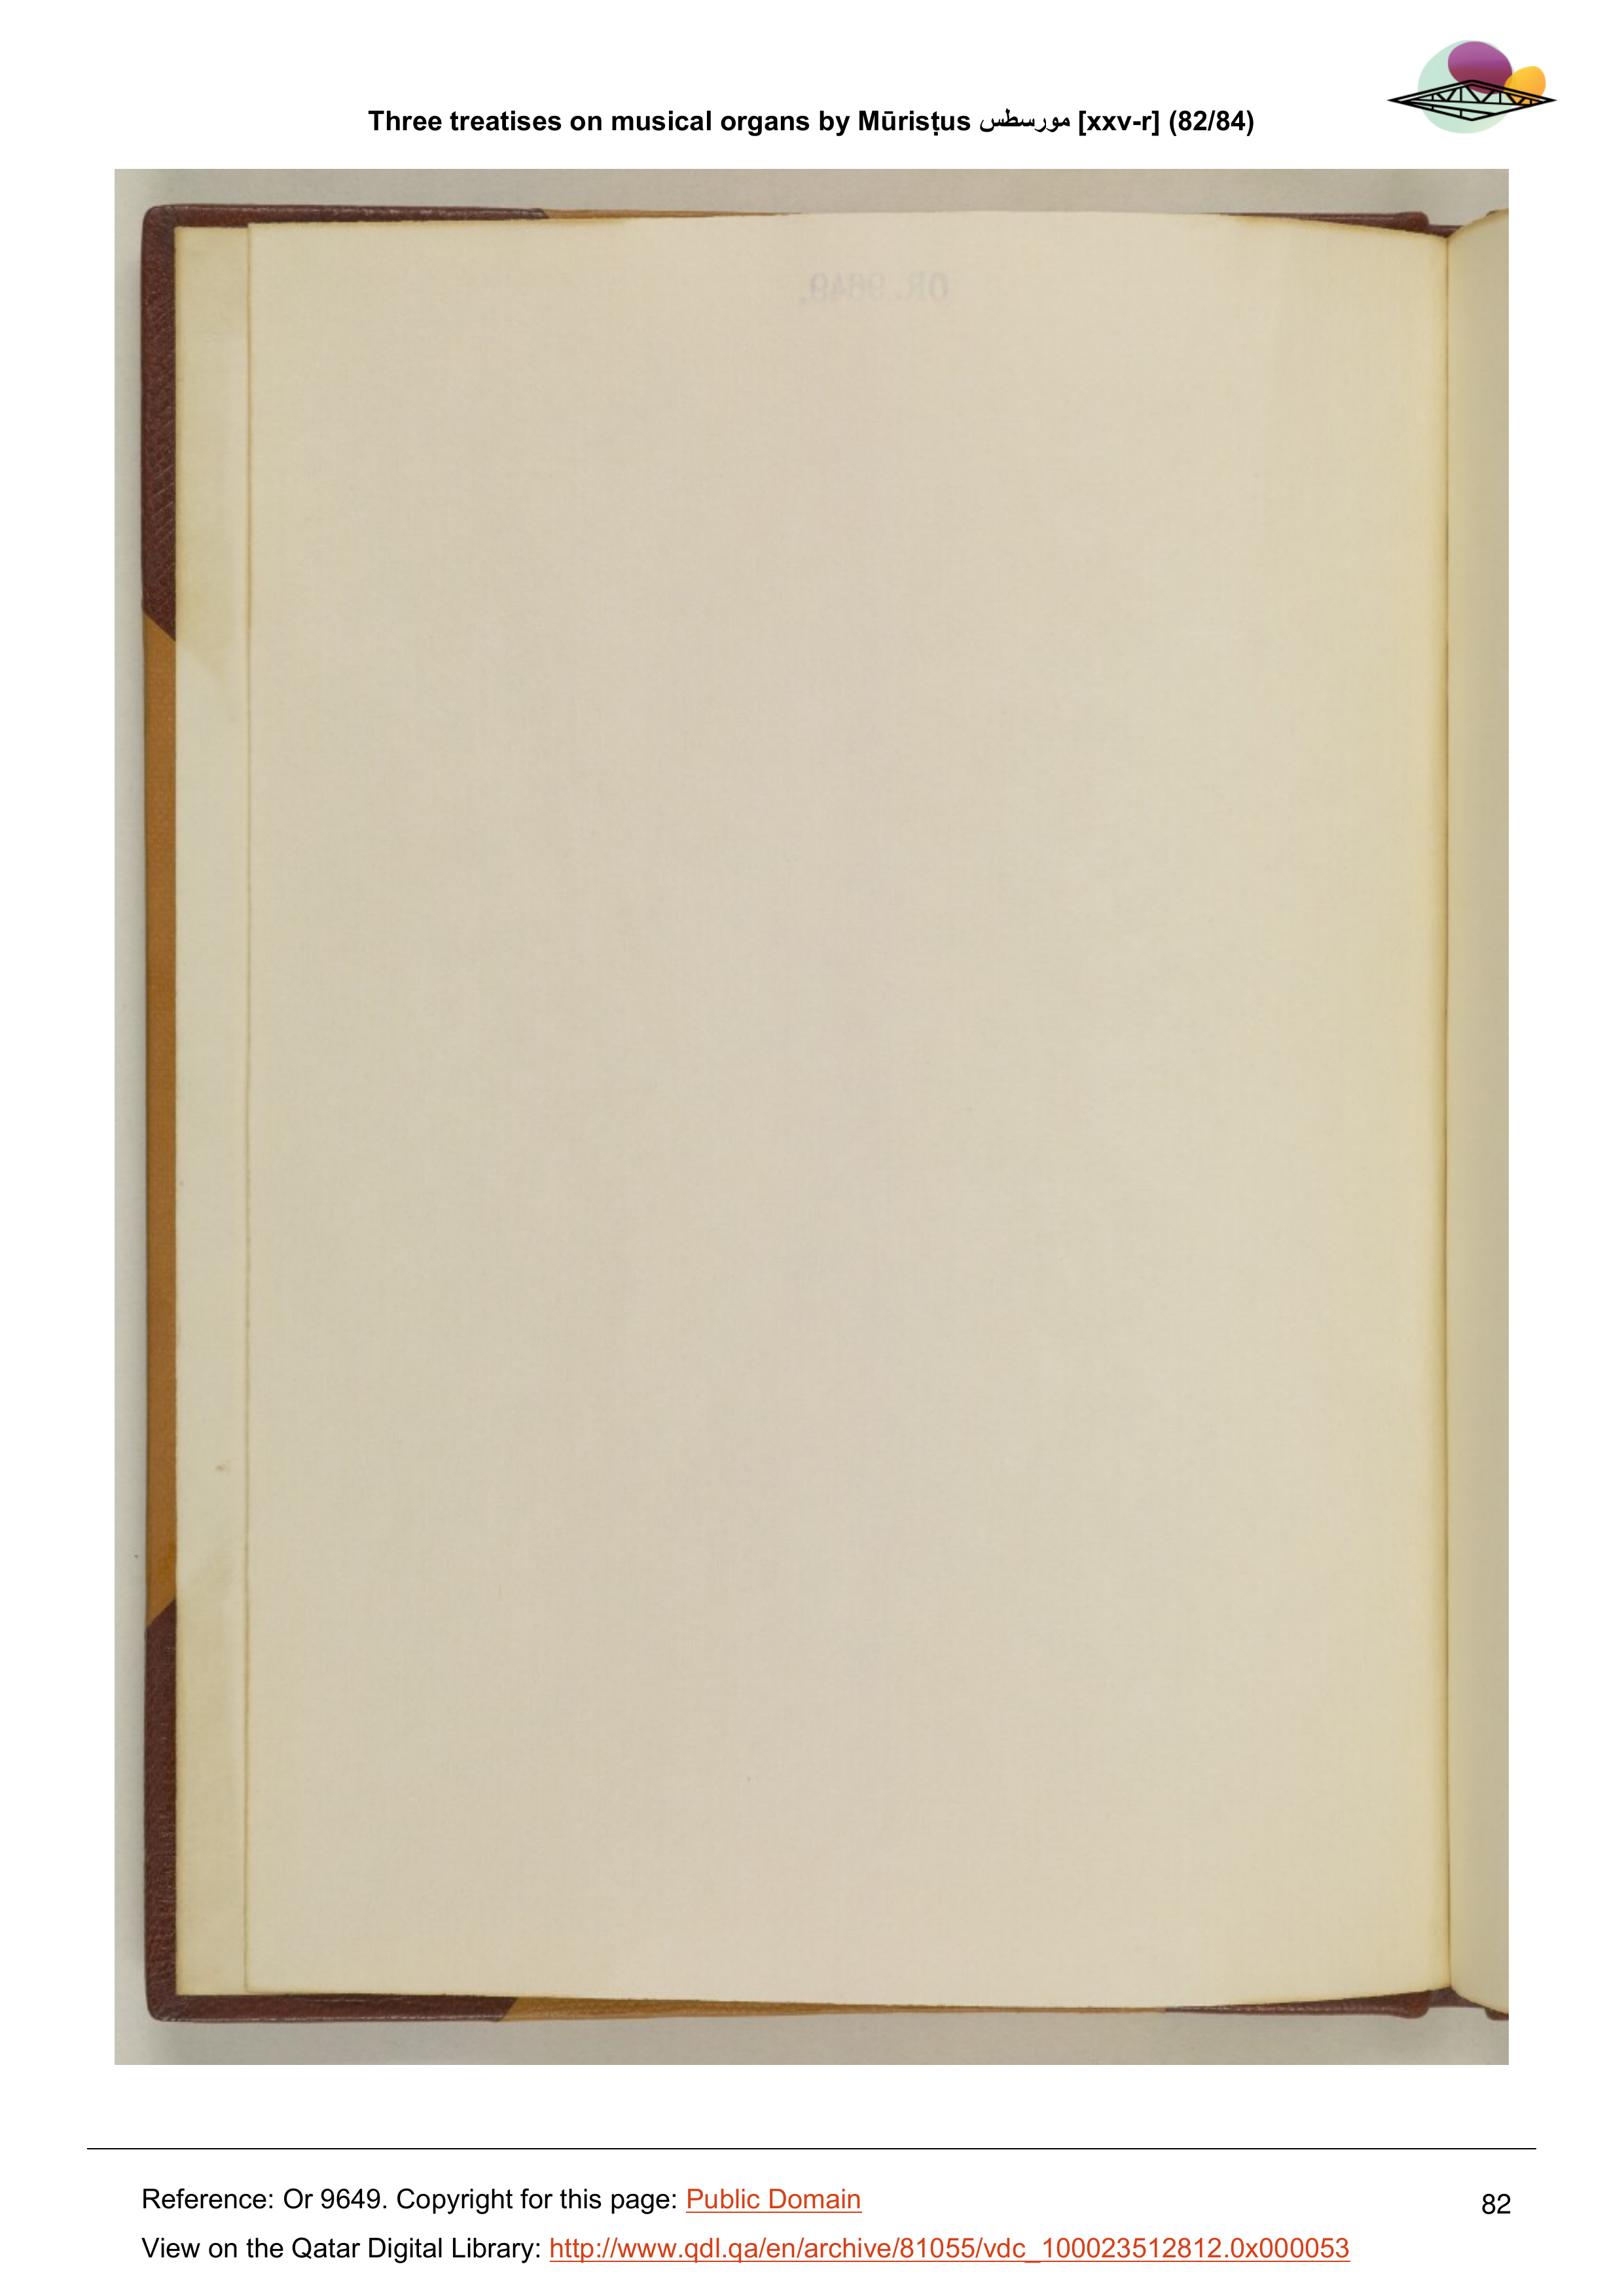 Three treatises on musical organs by Mūrisṭus مورسطس [xxv-r] (82/84)
OR.9649.
Reference: Or 9649. Copyright for this page: Public Domain
82
View on the Qatar Digital Library: http://www.qdl.qa/en/archive/81055/vdc_100023512812.0x000053